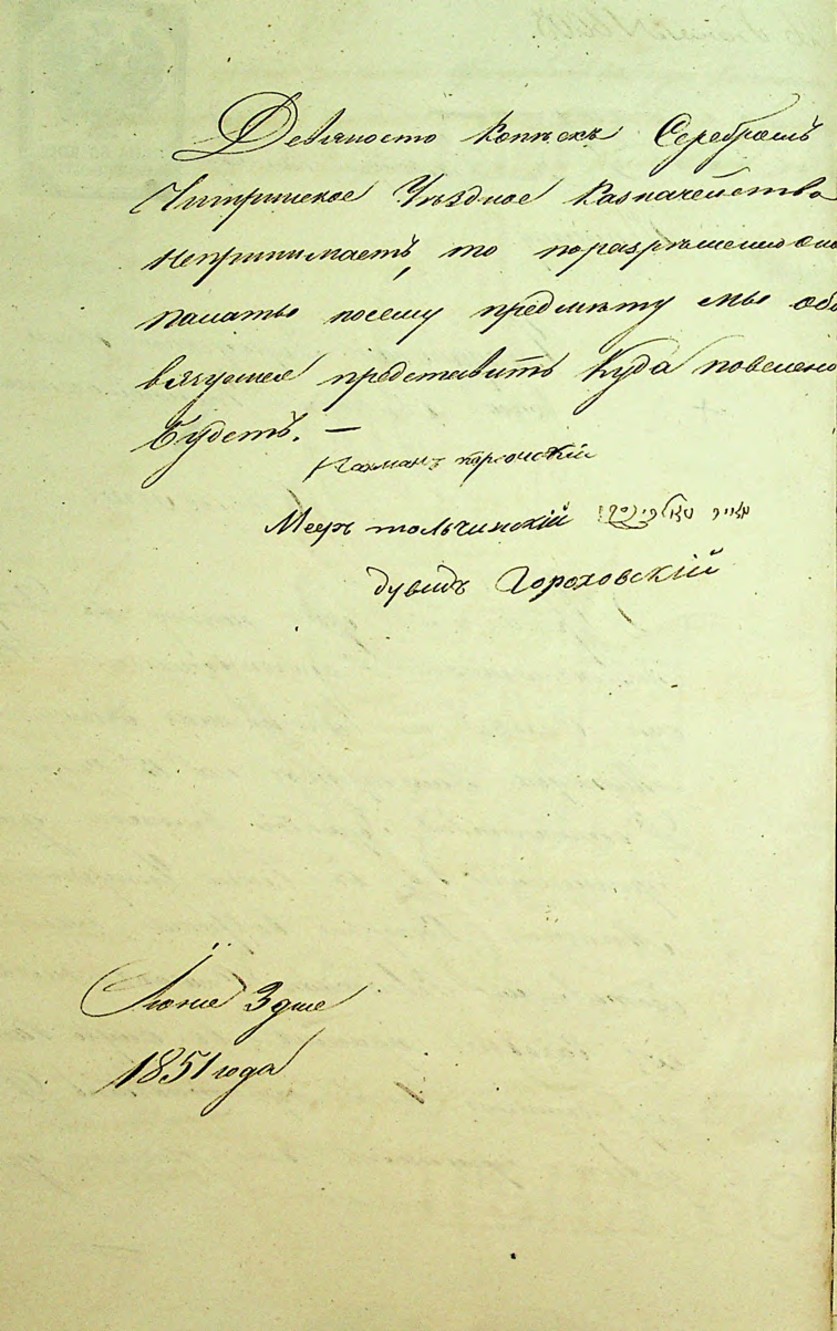 Девяносто Копѣекъ Серебромъ
Уѣздное Казначейство
непринимаетъ, то поразрѣшенію
палаты посему предмѣту мы обя
вуемся представить Куда повелено
будетъ. —
Нахманъ
Мееръ тольчинскій מאיר
дувидъ Гороховскій
Іюня 3 дня
1851 года